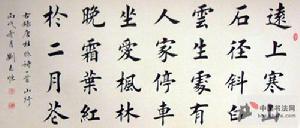 遠上寒山
石徑斜白
雲生處有
人家停車
坐愛楓林
晚霜葉紅
於二月花
唐杜牧詩一首山行
中国书法网